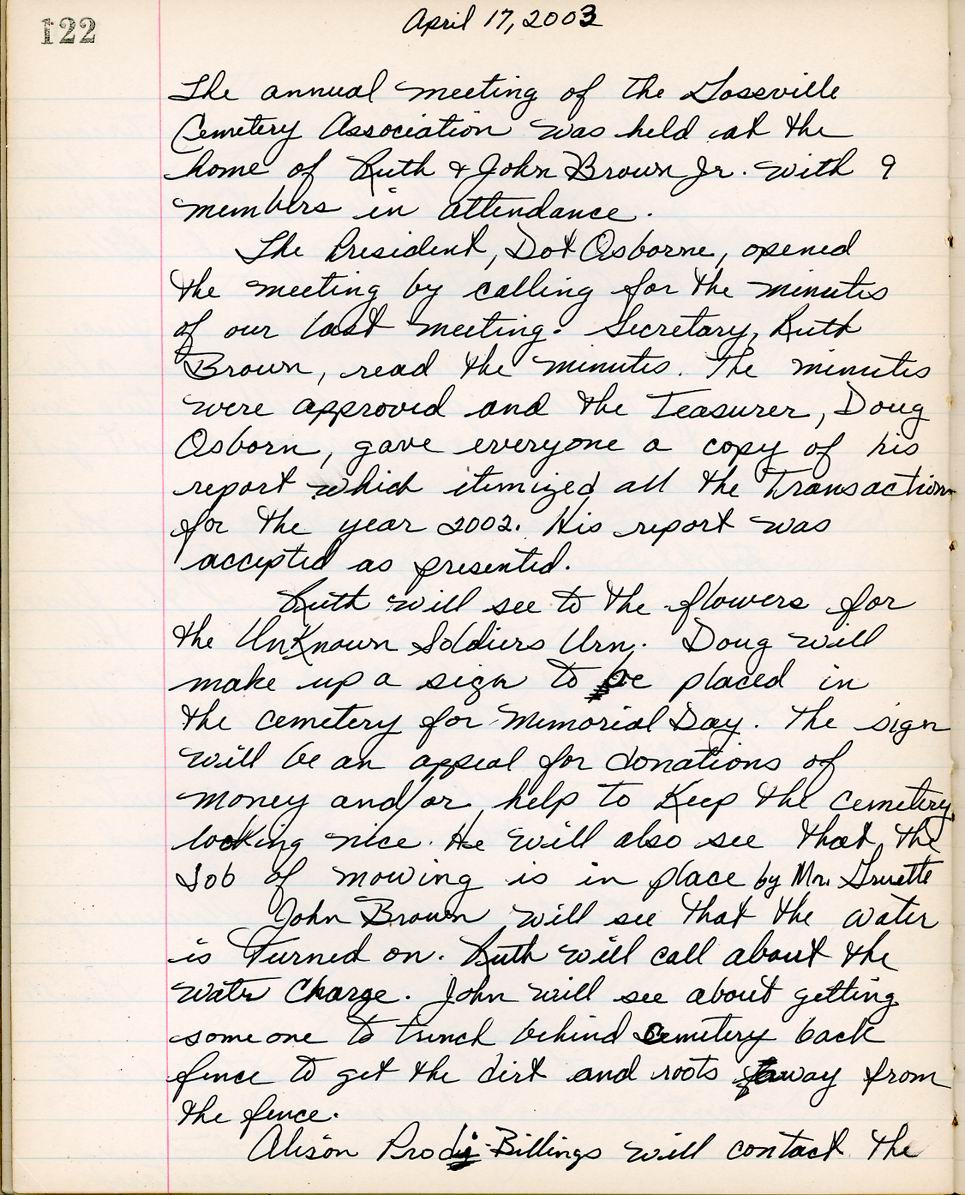 122
April 17, 2003
The annual meeting of the Gossville
Cemetery Association was held at the
home of Ruth & John Brown Jr. with 9
members in attendance.
The President, Dot Osborne, opened
the meeting by calling for the minutes
of our last meeting. Secretary, Ruth
Brown, read the minutes. The minutes
were approved and the Teasurer, Doug
Osborn, gave everyone a copy of his
report which itimized all the transactions
for the year 2002. His report was
accepted as presented.
Ruth will see to the flowers for
the UnKnown Soldiers Urn. Doug will
make up a sign to be placed in
the cemetery for Memorial Day. The sign
will be an appeal for donations of
money and/or help to Keep the cemetery
looking nice. He will also see that the
Job of mowing is in place by Mr.
John Brown will see that the water
is turned on. Ruth will call about the
water Charge. John will see about getting
someone to trench behind Cemetery back
fence to get the dirt and roots away from
the fence.
Alison Billings will contact the